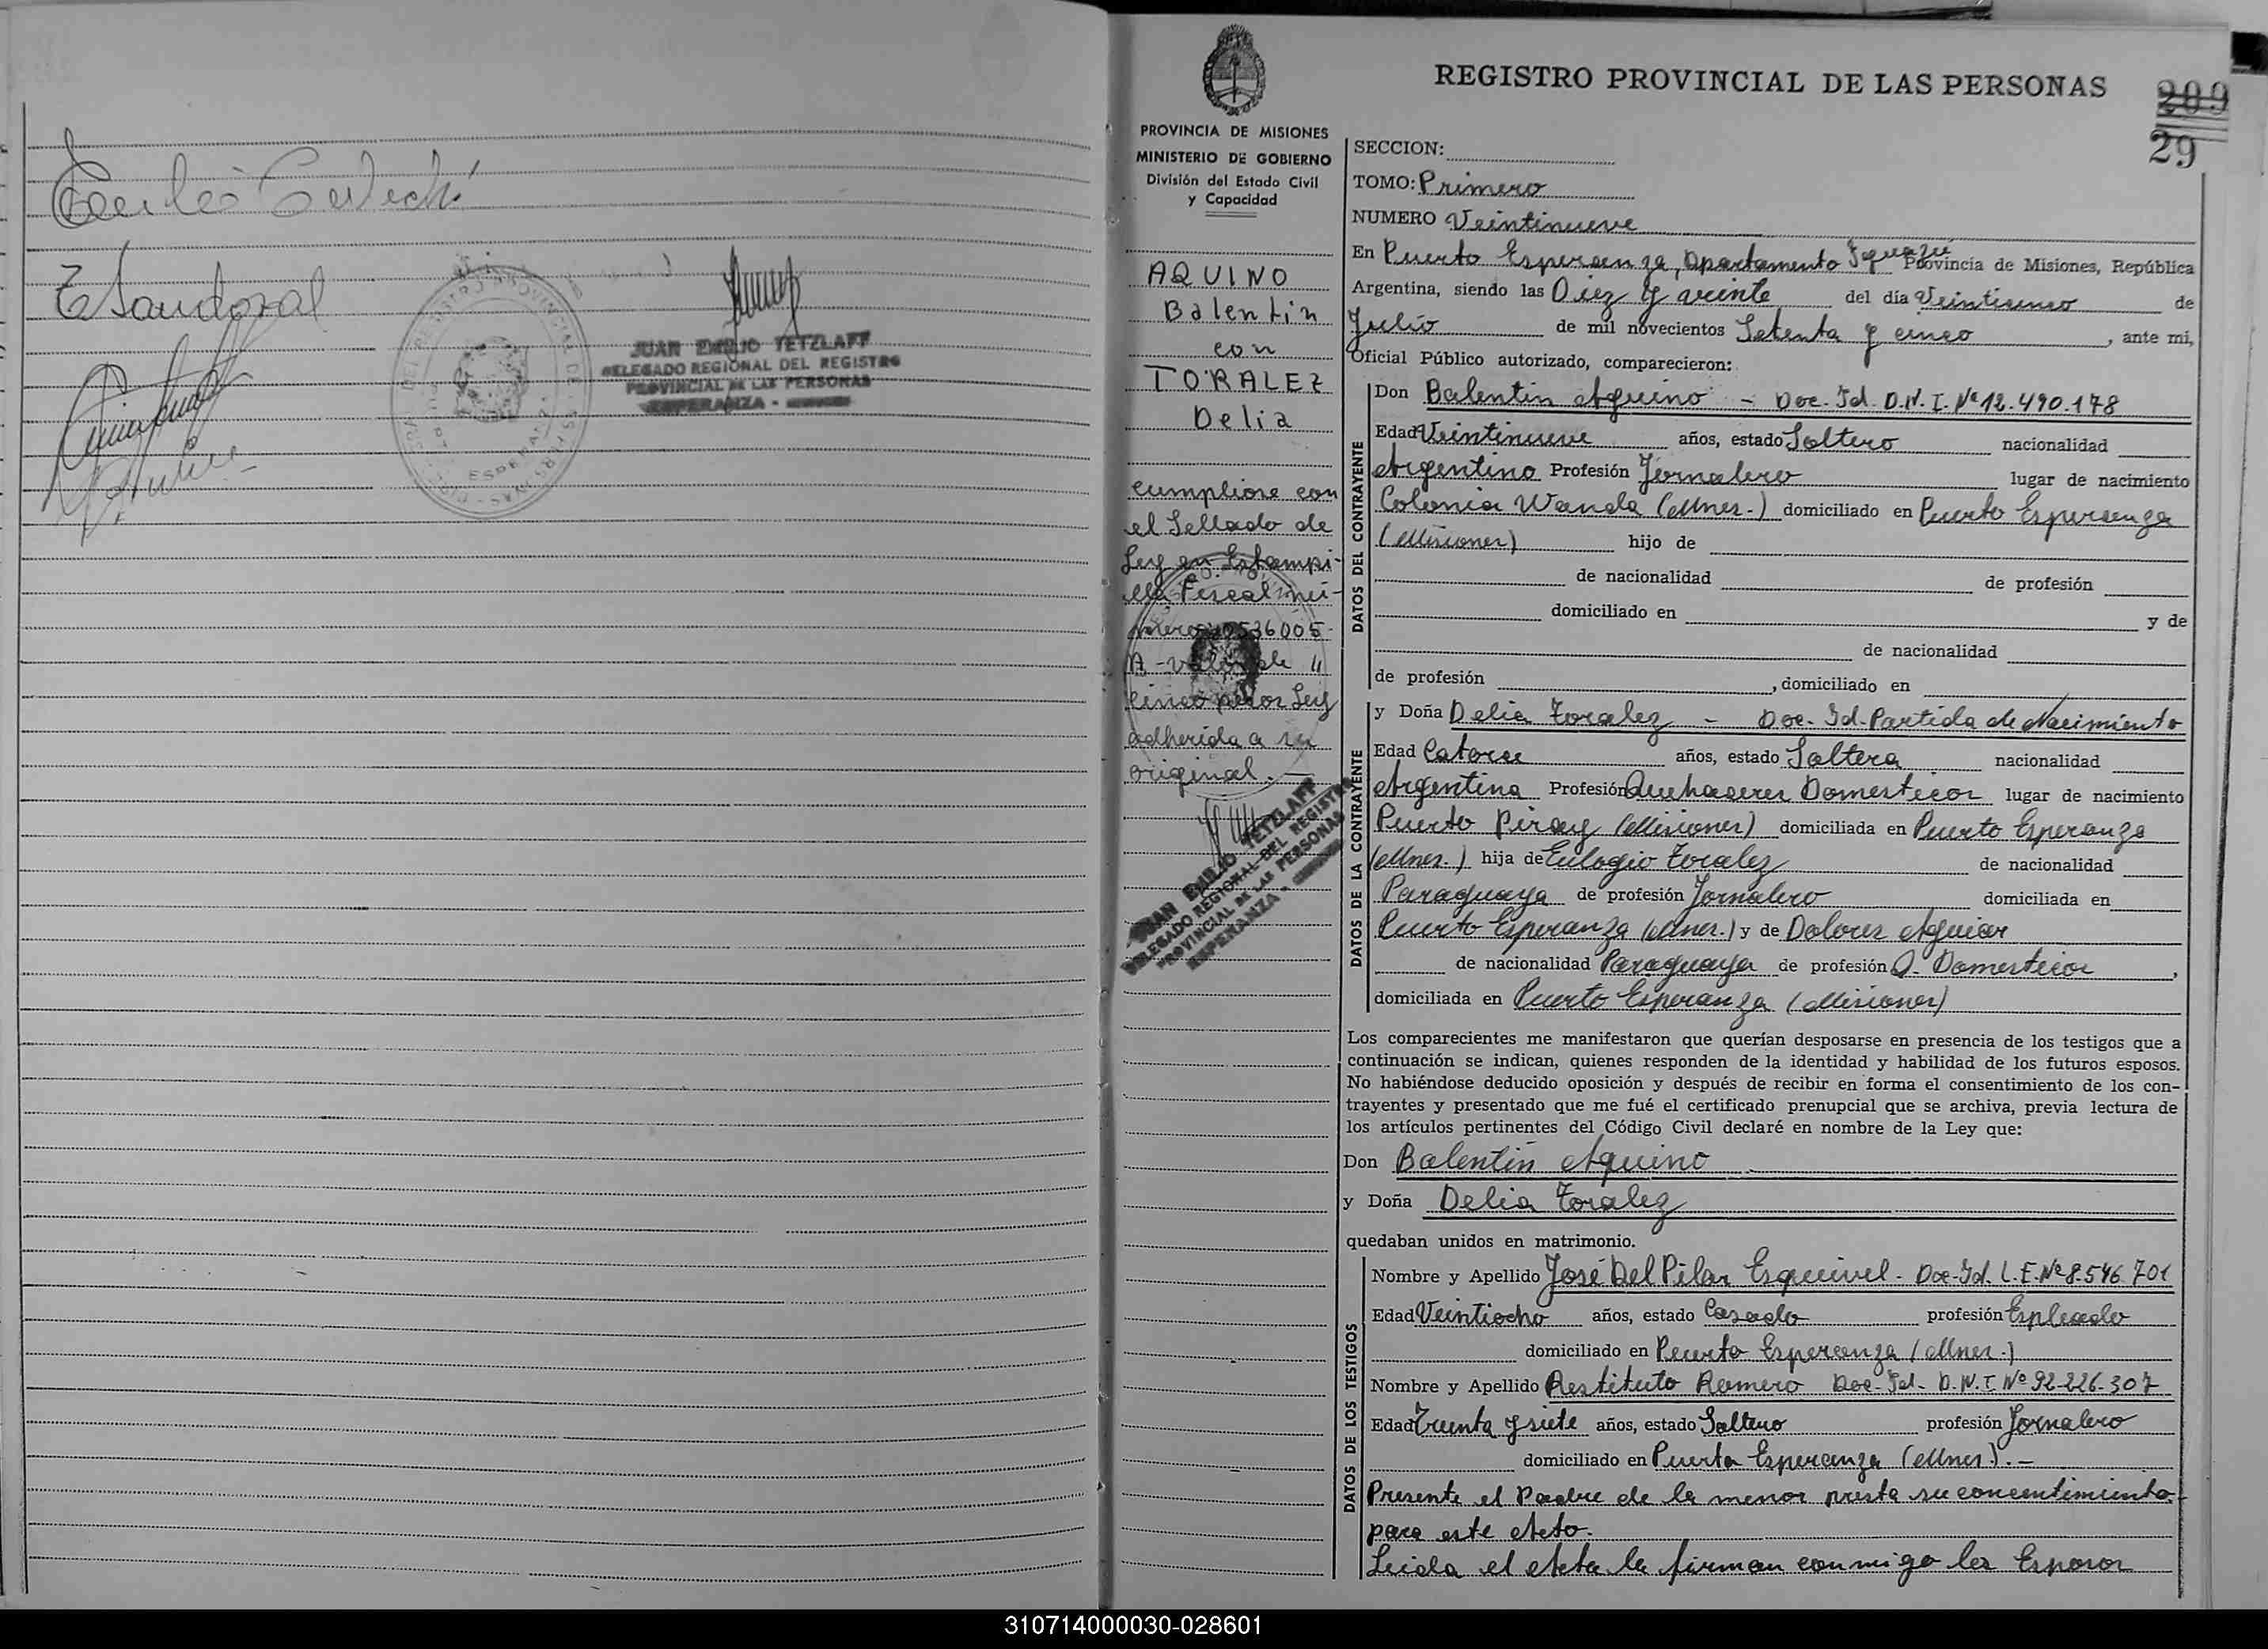 Sandoval
JUAN EMILIO TETZLAFF
DELEGADO REGIONAL DEL REGISTRO
PROVINCIAL DE LAS PERSONAS
ESPERANZA -
PROVINCIA DE MISIONES
MINISTERIO DE GOBIERNO
División del Estado Civil
y Capacidad
AQUINO
Balentin
con
TORALEZ
Delia
cumplióse con
el Sellado de
Ley en Estampi-
lla Fiscal nú-
mero 536005
A - valor de "
cinco pesos Ley
adherida a su
original. —
JUAN EMILIO TETZLAFF
DELEGADO REGIONAL DEL REGISTRO
PROVINCIAL DE LAS PERSONAS
ESPERANZA -
REGISTRO PROVINCIAL DE LAS PERSONAS
209
29
SECCION:
TOMO: Primero
NUMERO Veintinueve
En Puerto Esperanza, Dpartamento Iguazú Provincia de Misiones, República
Argentina, siendo las Diez y veinte del día Veinticinco de
Julio de mil novecientos Setenta y cinco, ante mí,
Oficial Público autorizado, comparecieron:
DATOS DEL CONTRAYENTE
Don Balentin Aquino - Doc. Id. D.N.I. Nº 12.490.178
Edad Veintinueve años, estado Soltero nacionalidad
Argentino Profesión Jornalero lugar de nacimiento
Colonia Wanda (Mnes.-) domiciliado en Puerto Esperanza
(Misiones) hijo de
de nacionalidad de profesión
domiciliado en y de
de nacionalidad
de profesión , domiciliado en
DATOS DE LA CONTRAYENTE
y Doña Delia Toralez - Doc. Id. Partida de Nacimiento
Edad Catorce años, estado Soltera nacionalidad
Argentina Profesión Quehaceres Domesticos lugar de nacimiento
Puerto Piray (Misiones) domiciliada en Puerto Esperanza
(Mnes.) hija de Eulogio Toralez de nacionalidad
Paraguaya de profesión Jornalero domiciliada en
Puerto Esperanza (Mnes.) y de Dolores Aguiar
de nacionalidad Paraguaya de profesión Q. Domesticos,
domiciliada en Puerto Esperanza (Misiones)
Los comparecientes me manifestaron que querían desposarse en presencia de los testigos que a
continuación se indican, quienes responden de la identidad y habilidad de los futuros esposos.
No habiéndose deducido oposición y después de recibir en forma el consentimiento de los con-
trayentes y presentado que me fué el certificado prenupcial que se archiva, previa lectura de
los artículos pertinentes del Código Civil declaré en nombre de la Ley que:
Don Balentin Aquino
y Doña Delia Toralez
quedaban unidos en matrimonio.
DATOS DE LOS TESTIGOS
Nombre y Apellido José Del Pilar Esquivel - Doc. Id. L.E. Nº 8.546.701
Edad Veintiocho años, estado Casado profesión Espleado
domiciliado en Puerto Esperanza (Mnes.-)
Nombre y Apellido Restituto Romero Doc. Id. D.N.I. Nº 92.226.307
Edad Treinta y siete años, estado Soltero profesión Jornalero
domiciliado en Puerto Esperanza (Mnes.).-
Presente el Padre de la menor presta su concentimiento
para este Acto.
Leida el Acta la firman conmigo los Esposos
310714000030-028601